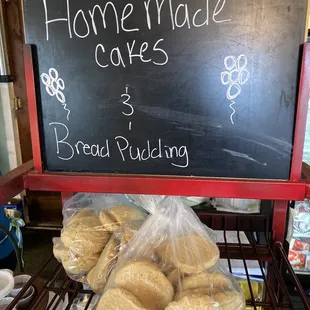 HomeMade
cakes
&
Bread Pudding